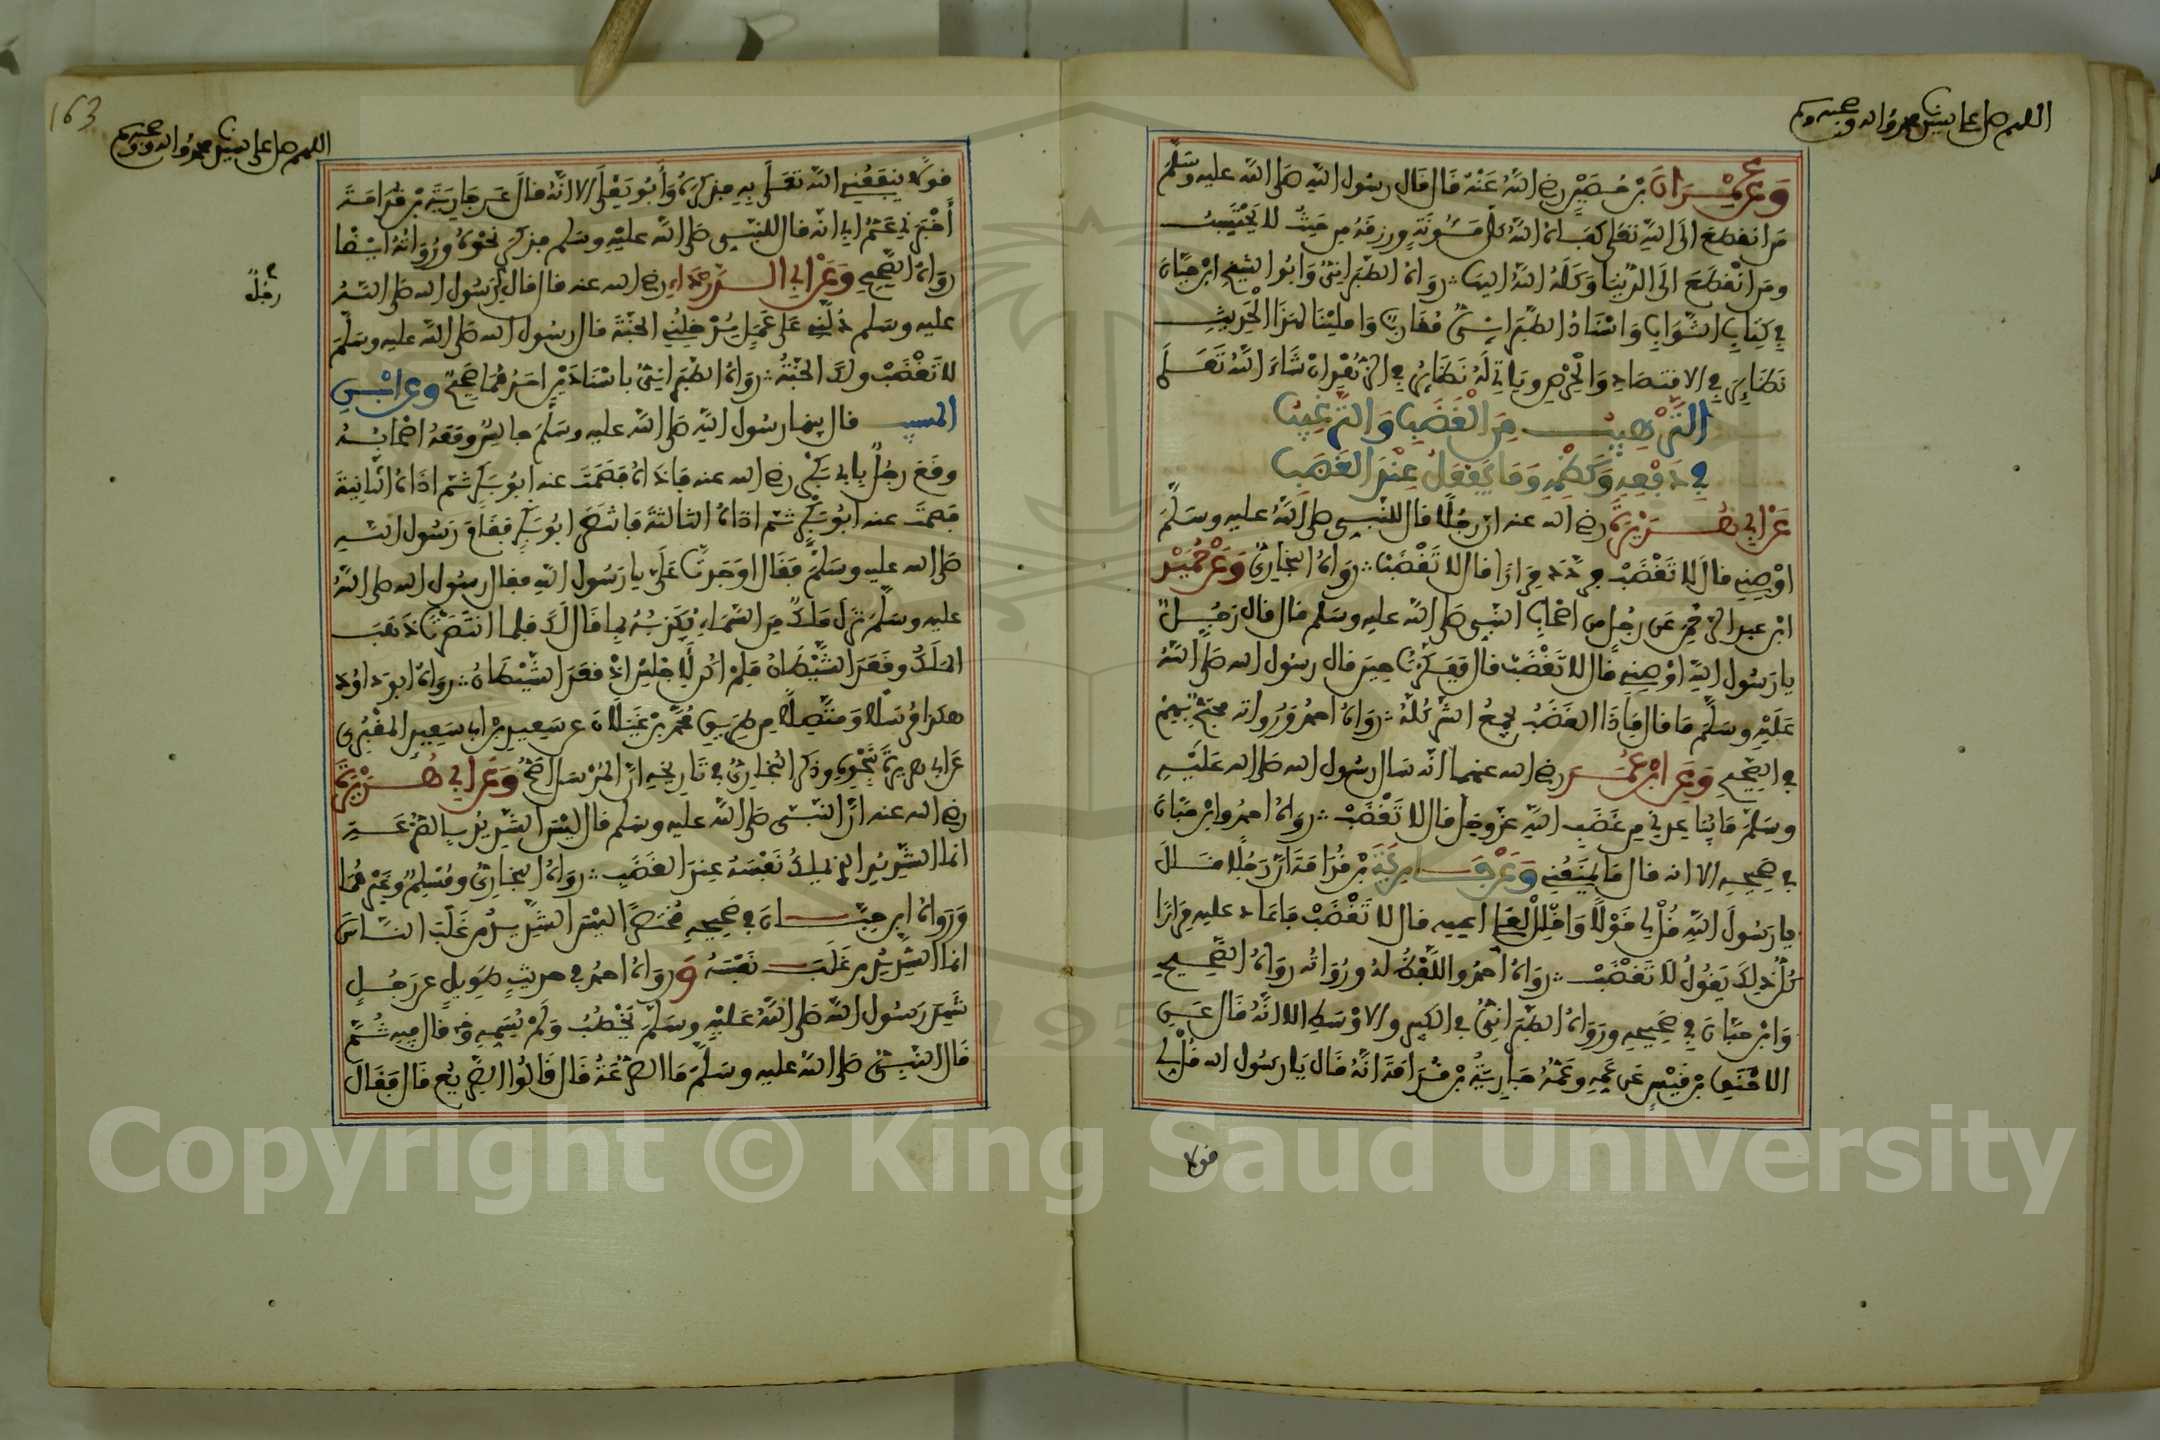 اللهم صل على نبينا محمد واله وصحبه وسلم
وَعَنْ عِمْرَانَ بْنِ حُصَيْنٍ رضي اللهُ عَنْهُ قَالَ قَالَ رسُول اللهِ صَلى اللهُ عليه وَسَلَّمَ
مَنِ انْقَطَعَ الَى اللهِ تعَلى كَفَاهُ اللهُ كُلَّ مَـُٔونَةٍ ورزقَهُ مِن حَيْثُ لا يَحْتَسِبُ
ومَنِ انْقَطَعَ الَى الدُّنْيَا وَكَلَهُ اللهُ الَيها رَوَاهُ الطَّبَرَانِيُّ وَابُوا الشيخِ ابْن حِبَّانَ
فِي كِتَابِ الثَّوَابِ وَاسْنَادُ الطَّبَرَانِيِّ مُقَارِبٌ وَامليْنَا لهَذَا الْحَدِيثِ
نَظَائِرَ فِي الاقْتِصَادِ وَالْحِرْصِ ويَاتِي لَهُ نَظَائِرُ فِي الزُّهْدِ انْ شَاءَ اللهُ تَعَلى
التَّرْهِيبُ مِنَ الْغَضَبِ وَالتَّرْغِيبُ
فِي دَفْعِهِ وَكَظْمِهِ وَمَا يَفْعَلُ عِنْدَ الغَضَبِ
عَنْ ابِي هُرَيْرَةَ رضي الله عنه انَّ رجُلًا قال للنَّبِي صلى اللهُ عليه وسَلَّمَ
اوْصِنِي قالَ لا تَغْضَبْ فردَّدَ مِرَارًا قال لا تَغْضَبْ رَوَاهُ البخارِيُّ وَعَنْ حُمَيْدِ
ابْن عبد الرحْمَنِ عَن رجُلٍ من اصْحَابِ النَّبِي صَلى الله عليه وسَلم قال قالَ رَجُلٌ
يا رَسُولَ اللهِ اوْصِنِي قالَ لا تَغْضَبْ قالَ فَفَكَّرْتُ حِينَ قالَ رسُول الله صَلى اللهُ
عَلَيْهِ وسَلَّمَ مَا قَالَ فَإِذَا الغَضَبُ يَجْمَعُ الشَّرَّ كُلَّهُ رَوَاهُ احمدُ وَرُواته محتَجٌّ بِهِمْ
فِي الصَّحِيحِ وَعَنِ ابْنِ عُمَرَ رضي الله عنهما انَّه سَالَ رسُولَ الله صَلى الله عَلَيْهِ
وسَلَّمَ مَا يُبَاعِدُنِي مِن غَضَبِ اللهِ عزَّ وجَلَّ قَالَ لا تَغْضَبْ رَوَاهُ احمدُ وابْن حِبَّانَ
فِي صَحِيحِهِ الا انه قال مَا يَمْنَعُنِي وَعَنْ جَارِيَةَ بْنِ قُدَامَةَ انَّ رَجُلًا سَالَ
يا رَسُولَ اللهِ قُلْ لِي قَوْلًا وَاقْلِلْ لعَلِّي اعيه قال لا تَغْضَبْ فاعَادَ عليهِ مِرَارًا
كُلُّ ذلِكَ يَقُولُ لَا تَغْضَبْ رَوَاهُ احمدُ واللَّفْظُ لهُ ورُوَاتُهُ روَاةُ الصَّحِيحِ
وَابْنُ حِبَّانَ فِي صَحِيحِهِ ورَوَاهُ الطَّبَرَانِيُّ فِي الكبيرِ والاوْسَطِ الا انَّهُ قَالَ عَنِ
الاحْنَفِ بْنِ قَيْسٍ عَن عَمِّهِ وعَمُّهُ جَارِيَةُ بْنُ قُدَامَةَ انَّهُ قَالَ يَا رسُولَ الله قُلْ لِي
قولا
163
اللهم صل على نبينا محمد واله وصحبه وسلم
قَوْلًا يَنْفَعُنِي اللهُ تَعَلى بِهِ فذكرَهُ وَأَبُو يَعْلَى الا انَّهُ قَالَ عَن جَارِيَةَ بْنِ قُدَامَةَ
أَخْبَرَنِي عَمُّ ابِي انَّه قال للنَّبِي صَلى اللهُ عليْهِ وسَلم فذكرَ نَحْوَهُ ورُوَاتُهُ ايْضًا
رُوَاةُ الصَّحِيحِ وَعَنْ ابِي الدَّرْدَاءِ رضي الله عنه قال قال رجُلٌ لِرَسُولِ الله صَلى اللهُ
عليه وسَلم دُلَّنِي عَلى عَمَلٍ يُدْخِلُنِي الجنَّةَ قالَ رسُولُ الله صَلى اللهُ عليه وسَلَّمَ
لا تَغْضَبْ ولَكَ الجَنَّةُ رَوَاهُ الطَّبَرَانِيُّ باسْنَادَيْنِ احَدُهُمَا صَحِيحٌ وعن ابْنِ
المُسَيِّبِ قال بينما رسُولُ اللهِ صَلى اللهُ عليه وسَلَّمَ جالسٌ ومَعَهُ اصْحَابُهُ
وقَعَ رجُلٌ بِابِي بَكْرٍ رضي الله عنه فآذَاهُ فصَمَتَ عنه ابُو بَكْرٍ ثم اذَاهُ الثَّانِيَةَ
فصمَتَ عنه ابُو بَكْرٍ ثم اذَاهُ الثالثَةَ فانْتَصَرَ ابُو بَكْرٍ فقَامَ رَسُولُ اللهِ
صَلى الله عليه وسَلَّمَ فقَالَ اوَجَدْتَ عَلَيَّ يا رَسُولَ اللهِ فقال رسُولُ الله صلى اللهُ
عليه وسَلَّمَ نَزَلَ مَلَكٌ مِنَ السَّمَاءِ يُكَذِّبُهُ بِمَا قَالَ لَكَ فلما انْتَصَرْتَ ذهَبَ
المَلَكُ وقَعَدَ الشَّيْطَانُ فلمْ اكُنْ لِأَجْلِسَ اذْ قعَدَ الشَّيْطَانُ رَوَاهُ ابو دَاوُدَ
هكذا مُرْسَلًا ومتَّصِلًا مِن طرِيقِ مُحَمَّدِ بْنِ عَجْلانَ عن سَعِيدِ بْنِ ابِي سَعِيدٍ المَقْبُرِي
عَنْ ابي هريرَةَ بِنَحْوِهِ وذكَرَ البُخَارِيُّ فِي تَارِيخِهِ انَّ المُرْسَلَ اصَحُّ وَعَنْ ابِي هُرَيْرَةَ
رضي الله عنه انَّ النَّبِيَّ صَلى اللهُ عليه وسَلم قالَ لَيْسَ الشَّدِيدُ بِالصُّرَعَةِ
انما الشَّدِيدُ الذي يملِكُ نَفْسَهُ عِنْدَ الغَضَبِ رَوَاهُ البخَارِيُّ ومُسْلِمٌ وغَيْرهُمَا
وَرَوَاهُ ابن حِبَّانَ فِي صَحِيحِهِ مُخْتَصَرًا لَيْسَ الشَّدِيدُ مَن غَلَبَ النَّاسَ
انما الشَّدِيدُ مَن غَلَبَ نَفْسَهُ وَرَوَاهُ احمدُ فِي حديثٍ طَوِيلٍ عن رَجُلٍ
شَهِدَ رَسُولَ اللهِ صَلى اللهُ عَليْهِ وسَلَّمَ يَخْطُبُ وَلَمْ يُسَمِّهِ وَقَالَ فِيهِ ثُمَّ
قَالَ النَّبِيُّ صَلى اللهُ عليه وسَلَّمَ مَا الصُّرَعَةُ قَالَ قَالُوا الصَّرِيعُ قَالَ فَقَالَ
رجُلٌ
Copyright © King Saud University
1957